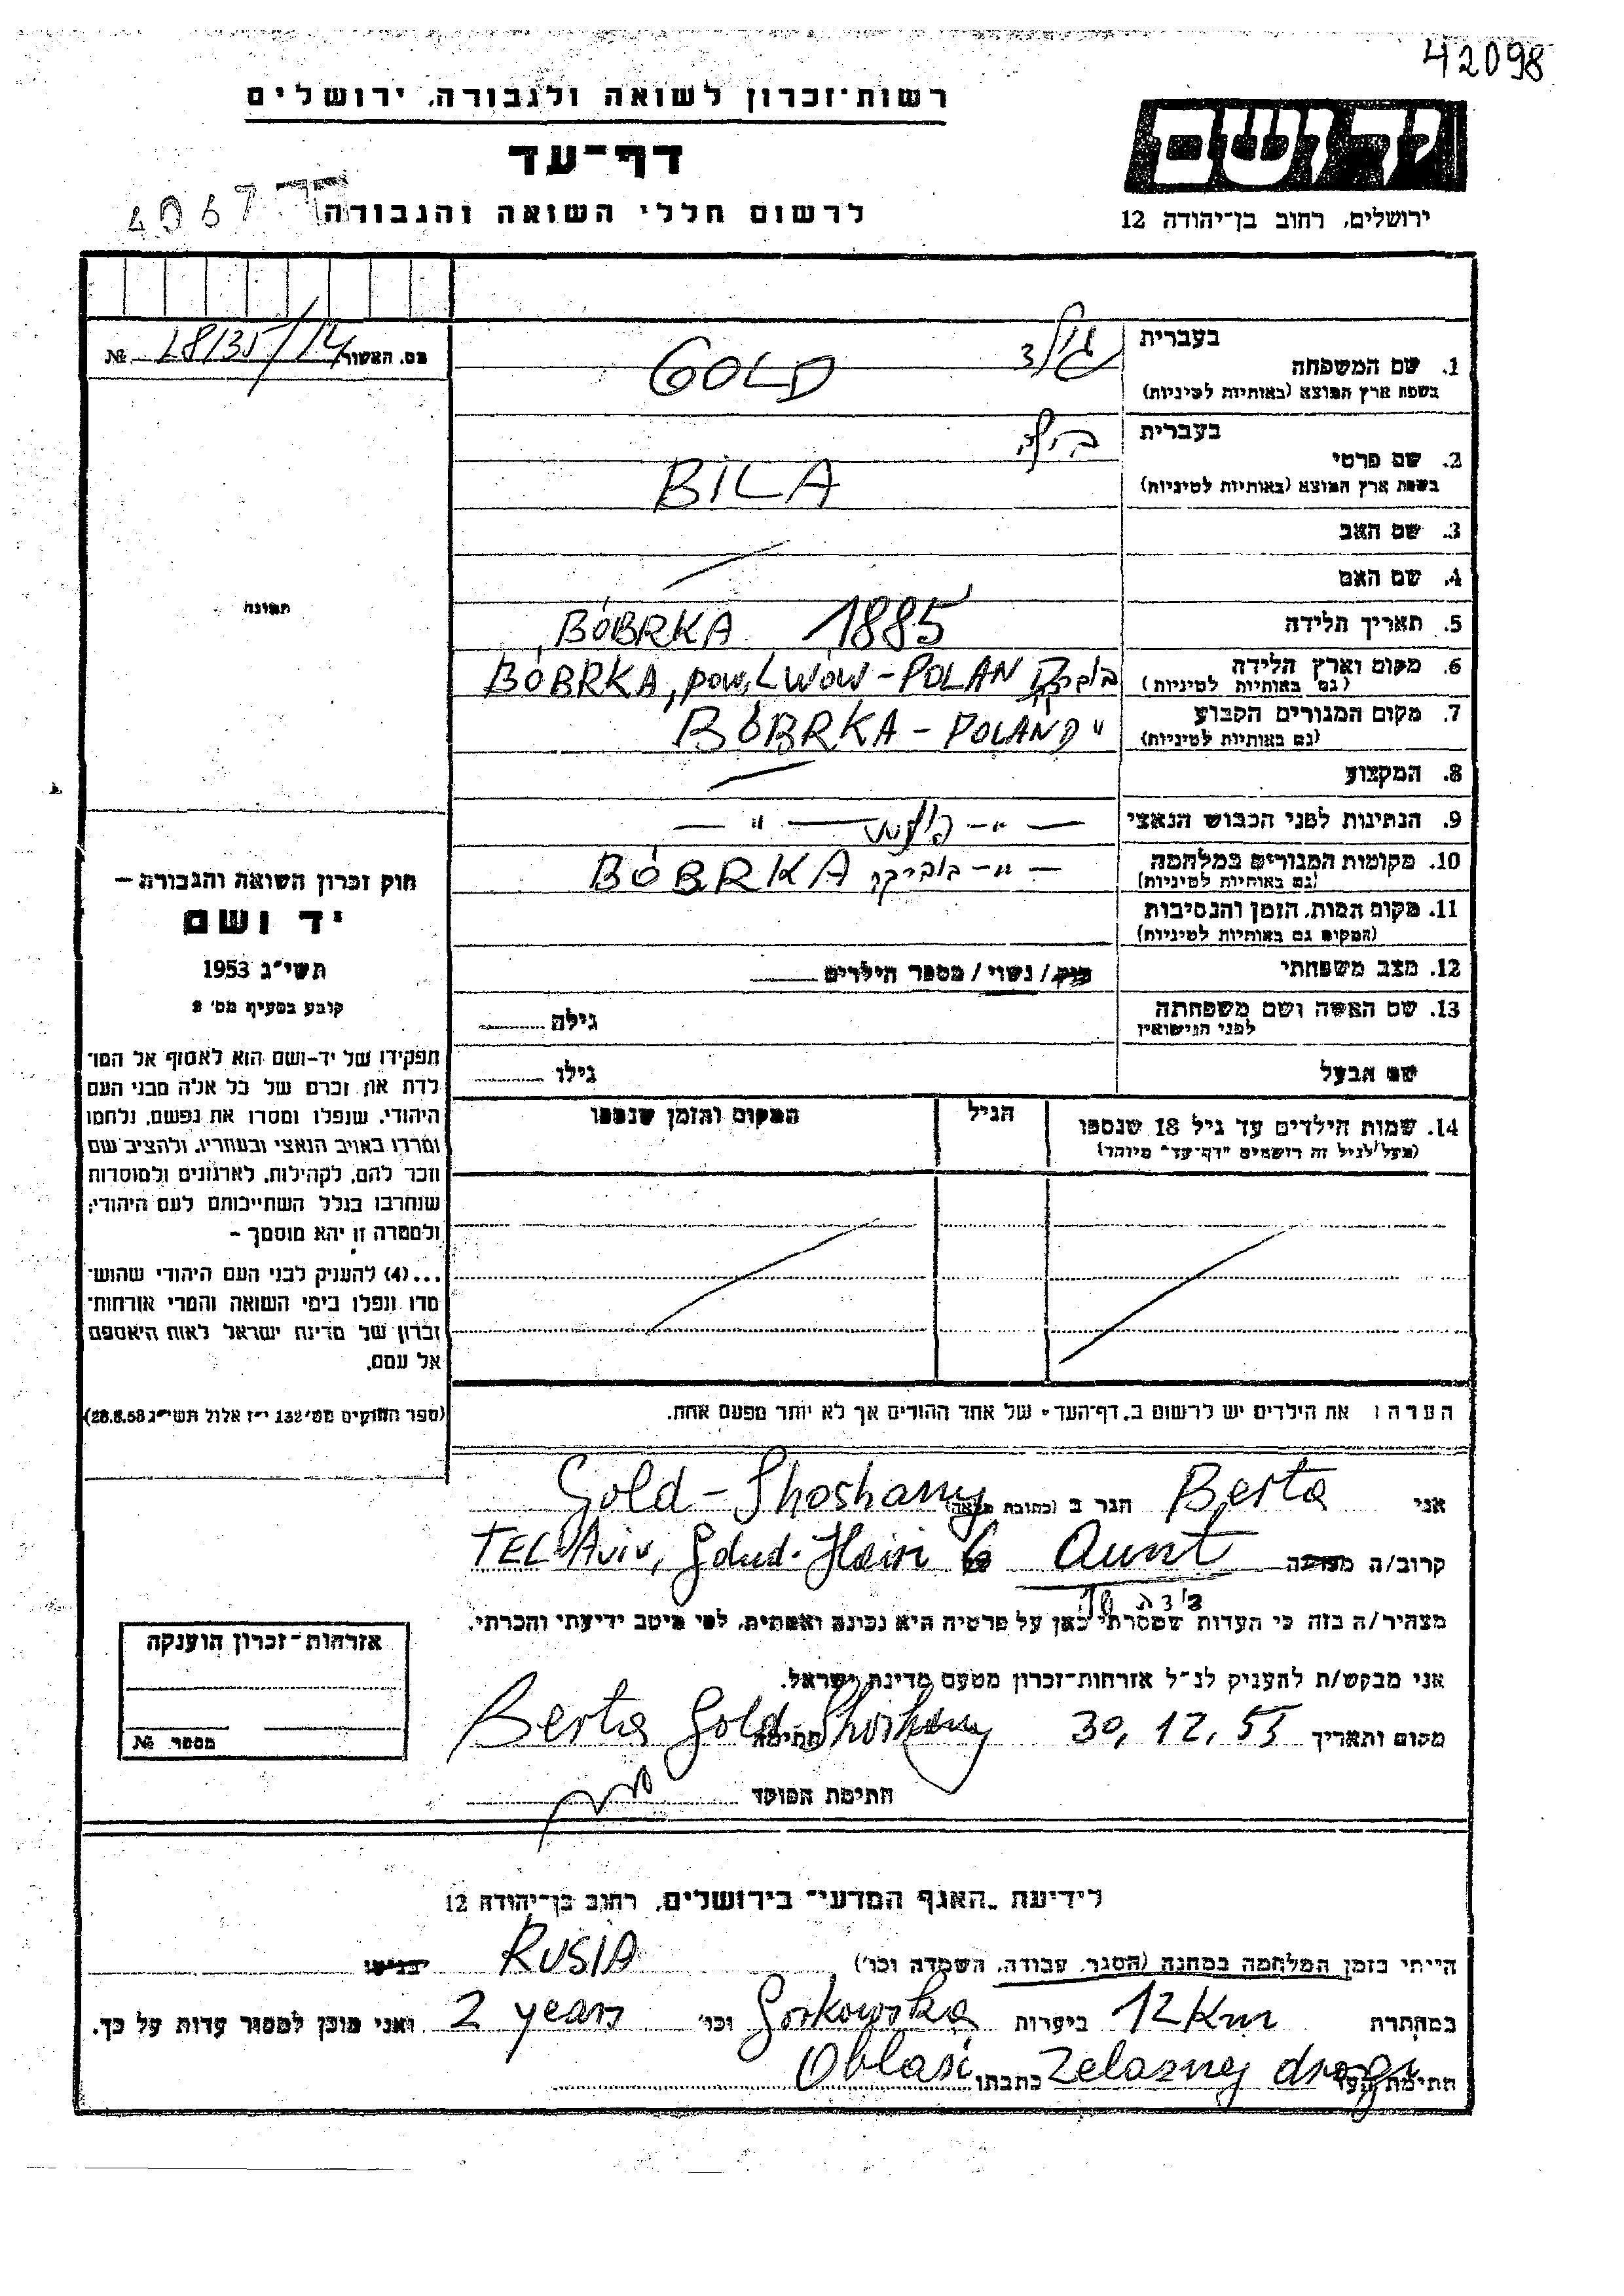 42098
רשות־זכרון לשואה ולגבורה, ירושלים
יד ושם
דף־עד
לרשום חללי השואה והגבורה
4067
ירושלים, רחוב בן־יהודה 12
מס. האשור № 28/35/14
בעברית גולד
1. שם המשפחה
בשפת ארץ המוצא (באותיות לטיניות) GOLD
בעברית בילה
2. שם פרטי
בשפת ארץ המוצא (באותיות לטיניות) BILA
3. שם האב
4. שם האם
תמונה
5. תאריך הלידה 1885 BÓBRKA
6. מקום וארץ הלידה BÓBRKA, pow. LWÓW - POLAN
(גם באותיות לטיניות)
7. מקום המגורים הקבוע " BÓBRKA - POLAND
(גם באותיות לטיניות)
8. המקצוע
9. הנתינות לפני הכבוש הנאצי
10. מקומות המגורים במלחמה — " — בוברקה BÓBRKA
(גם באותיות לטיניות)
11. מקום המות, הזמן והנסיבות
(המקום גם באותיות לטיניות)
12. מצב משפחתי רווק / נשוי / מספר הילדים
13. שם האשה ושם משפחתה גילה
לפני הנישואין
שם הבעל גילו
14. שמות הילדים עד גיל 18 שנספו הגיל המקום והזמן שנספו
(מעל לגיל זה רושמים "דף־עד" מיוחד)
חוק זכרון השואה והגבורה —
יד ושם
תשי"ג 1953
קובע בסעיף מס' 2
תפקידו של יד־ושם הוא לאסוף אל המו־
לדת את זכרם של כל אלה מבני העם
היהודי, שנפלו ומסרו את נפשם, נלחמו
ומרדו באויב הנאצי ובעוזריו, ולהציב שם
וזכר להם, לקהילות, לארגונים ולמוסדות
שנחרבו בגלל השתייכותם לעם היהודי;
ולמטרה זו יהא מוסמך —
...(4) להעניק לבני העם היהודי שהוש־
מדו ונפלו בימי השואה והמרי אזרחות־
זכרון של מדינת ישראל לאות היאספם
אל עמם.
(ספר החוקים מס' 132 י"ז אלול תשי"ג 28.8.53)
הערה: את הילדים יש לרשום ב„דף־העד" של אחד ההורים אך לא יותר מפעם אחת.
אני Berta הגר ב (כתובת מלאה) Gold-Shoshany
קרוב/ה Aunt של TEL Aviv, Gdud-Haivri 6
דודה
מצהיר/ה בזה כי העדות שמסרתי כאן על פרטיה היא נכונה ואמתית, לפי מיטב ידיעתי והכרתי.
אני מבקש/ת להעניק לנ"ל אזרחות־זכרון מטעם מדינת ישראל.
מקום ותאריך 30.12.55 חתימה Berta Gold-Shoshany
חתימת הפוקד
אזרחות־זכרון הוענקה
מספר №
לידיעת „האגף המדעי" בירושלים, רחוב בן־יהודה 12
הייתי בזמן המלחמה במחנה (הסגר, עבודה, השמדה וכו') RUSIA בגיטו
במחתרת 12 Km ביערות Gorkowska וכו' 2 years ואני מוכן למסור עדות על כך.
חתימת העד Zelaznej drogi כתבתו Oblasi